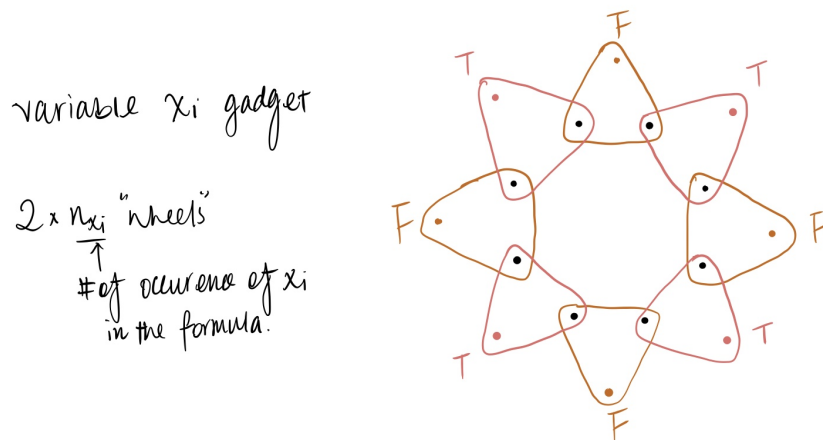 variable xi gadget
2 × nxi "wheels"
↑
# of occurence of xi
in the formula.
F
T
T
F
F
T
T
F